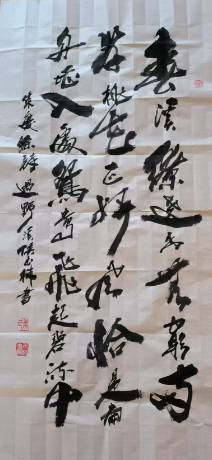 春溪繚遶出無窮兩
岸桃花正好風恰是扁
舟堪入處鴛鴦飛起碧流中
過野溪 書